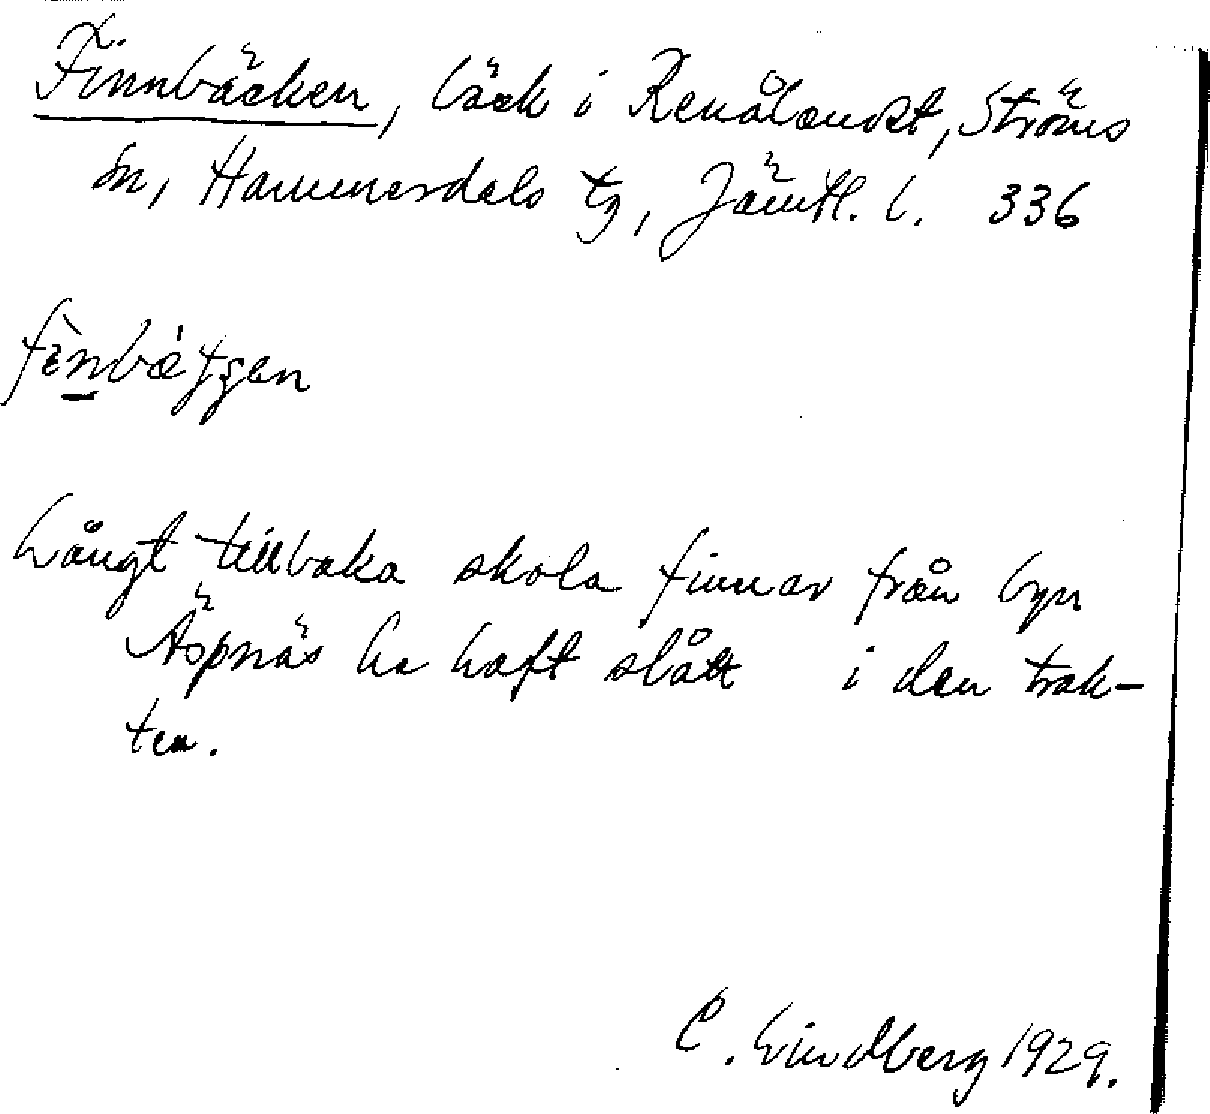 Finnbäcken, bäck i Renålandet, Ströms
sn, Hammerdals tg, Jämtl. l. 336
Långt tillbaka skola finnar från byn
Äspnäs ha haft slått i den trak-
ten.
C. Lindberg 1929.